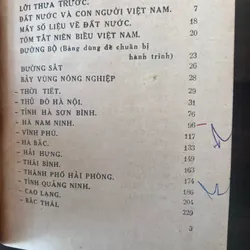 LỜI THƯA TRƯỚC. 7
ĐẤT NƯỚC VÀ CON NGƯỜI VIỆT NAM. 7
MẤY SỐ LIỆU VỀ ĐẤT NƯỚC. 18
TÓM TẮT NIÊN BIỂU VIỆT NAM. 20
ĐƯỜNG BỘ (Bảng dùng để chuẩn bị
hành trình) 23
ĐƯỜNG SẮT 26
BẢY VÙNG NÔNG NGHIỆP 28
- THỜI TIẾT. 29
- THỦ ĐÔ HÀ NỘI. 31
- TỈNH HÀ SƠN BÌNH. 76
- HÀ NAM NINH. 96
- VĨNH PHÚ. 117
- HÀ BẮC. 133
- HẢI HƯNG. 149
- THÁI BÌNH. 161
- THÀNH PHỐ HẢI PHÒNG. 174
- TỈNH QUẢNG NINH. 186
- CAO LẠNG. 204
- BẮC THÁI. 229
3